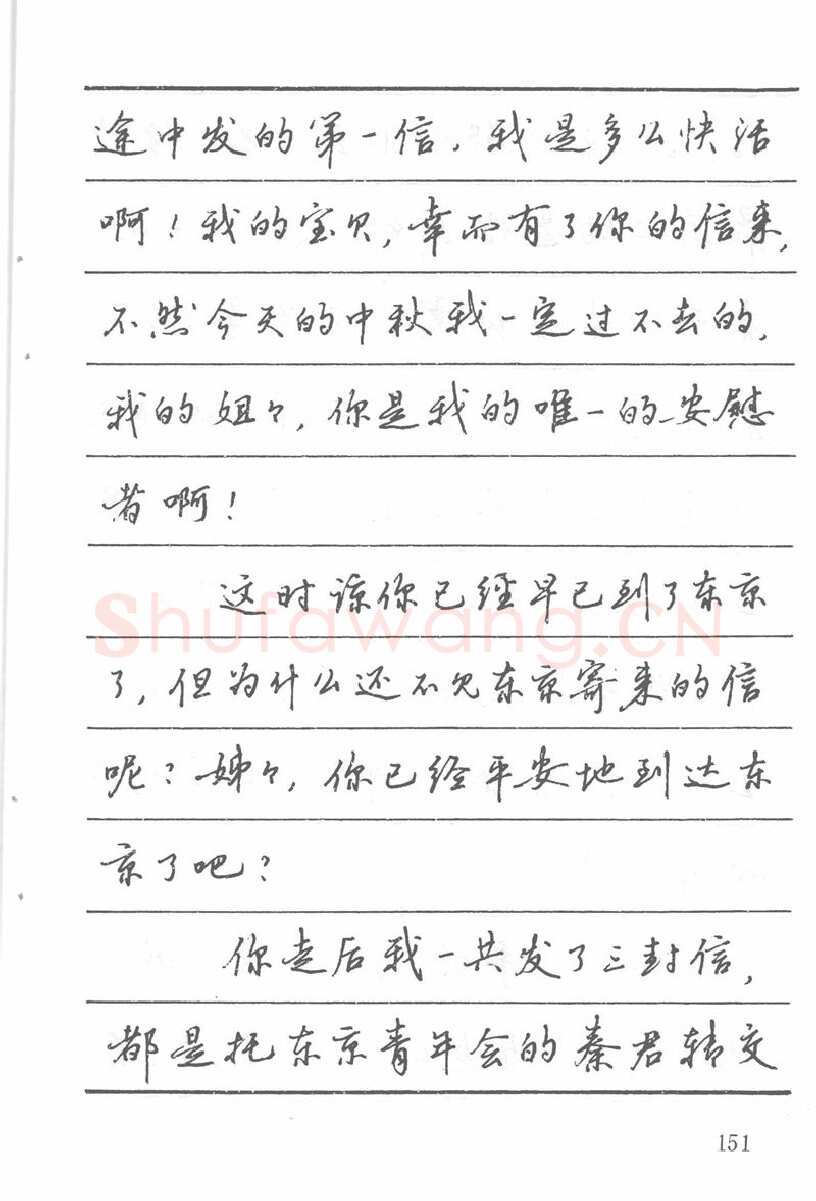 途中发的第一信，我是多么快活
啊！我的宝贝，幸而有了你的信来，
不然今天的中秋我一定过不去的，
我的姐々，你是我的唯一的安慰
者啊！
这时谅你已经早已到了东京
了，但为什么还不见东京寄来的信
呢？姊々，你已经平安地到达东
京了吧？
你走后我一共发了三封信，
都是托东京青年会的秦君转交
Shufawang.CN
151